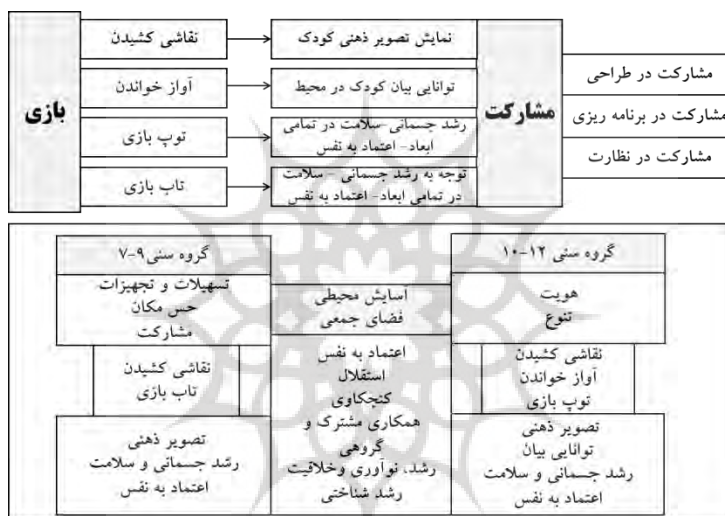 بازی
نقاشی کشیدن
آواز خواندن
توپ بازی
تاب بازی
نمایش تصویر ذهنی کودک
توانایی بیان کودک در محیط
رشد جسمانی-سلامت در تمامی
ابعاد- اعتماد به نفس
توجه به رشد جسمانی - سلامت
در تمامی ابعاد- اعتماد به نفس
مشارکت
مشارکت در طراحی
مشارکت در برنامه ریزی
مشارکت در نظارت
گروه سنی ۱۲-۱۰
هویت
تنوع
نقاشی کشیدن
آواز خواندن
توپ بازی
تصویر ذهنی
توانایی بیان
رشد جسمانی و سلامت
اعتماد به نفس
آسایش محیطی
فضای جمعی
اعتماد به نفس
استقلال
کنجکاوی
همکاری مشترک و
گروهی
رشد، نوآوری وخلاقیت
رشد شناختی
گروه سنی۹-۷
تسهیلات و تجهیزات
حس مکان
مشارکت
نقاشی کشیدن
تاب بازی
تصویر ذهنی
رشد جسمانی و سلامت
اعتماد به نفس